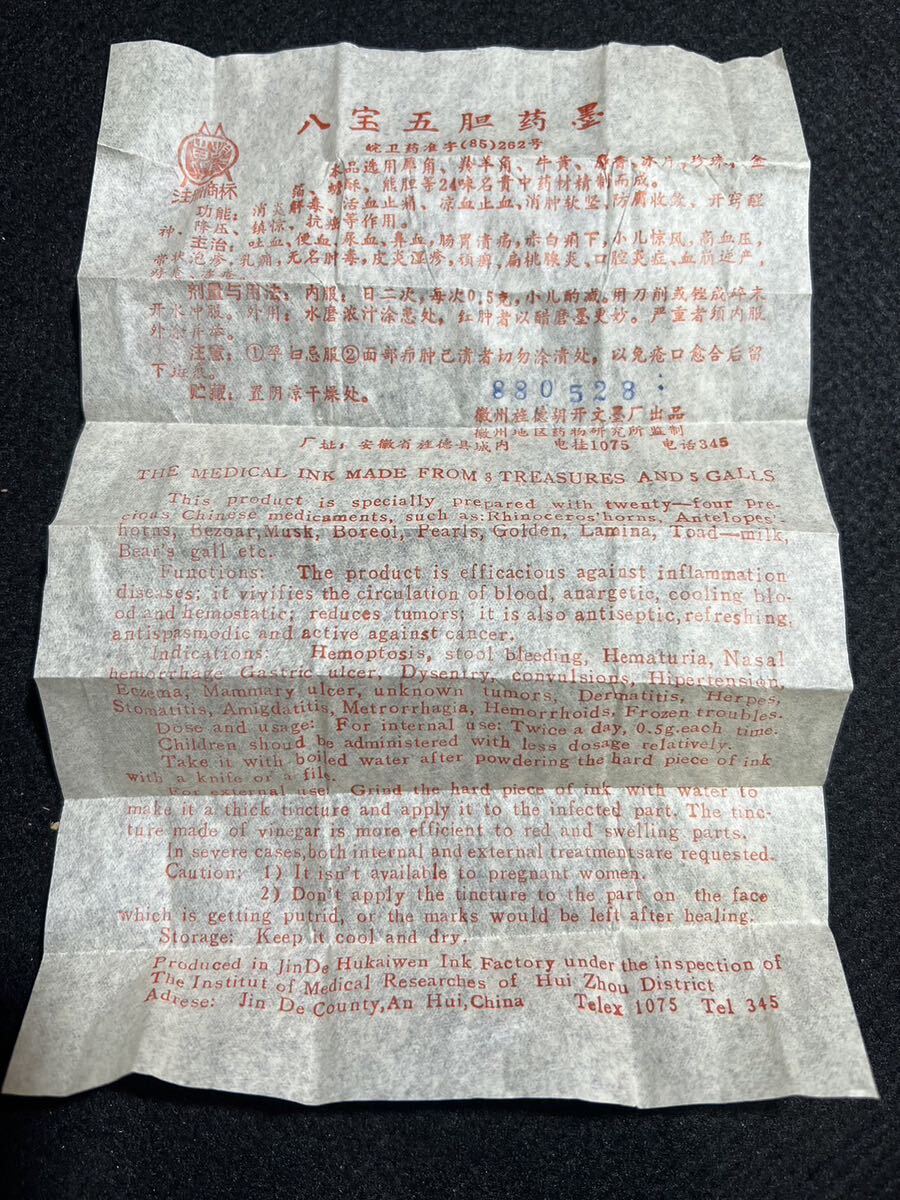 八宝五胆药墨
皖卫药准字(85)262号
注册商标
本品选用犀角、羚羊角、牛黄、麝香、冰片、珍珠、金
箔、蟾酥、熊胆等24味名贵中药材精制而成。
功能：消炎解毒、活血止痛、凉血止血、消肿软坚、防腐收敛、开窍醒
神、降压、镇惊、抗癌等作用。
主治：吐血、便血、尿血、鼻血，肠胃溃疡，赤白痢下，小儿惊风，高血压，
带状泡疹、乳痈，无名肿毒。皮炎湿疹，顽痹，扁桃腺炎、口腔炎症、血崩逆产，
剂量与用法：内服：日二次，每次0.5克，小儿酌减。用刀削或锉成碎末
开水冲服。外用：水磨浓汁涂患处，红肿者以醋磨墨更妙。严重者须内服
外涂并治。
注意：①孕妇忌服②面部疖肿已溃者切勿涂溃处，以免疮口愈合后留
下斑痕。
贮藏：置阴凉干燥处。
880528
徽州旌德胡开文墨厂出品
徽州地区药物研究所监制
厂址：安徽省旌德县城内 电挂1075 电话345
THE MEDICAL INK MADE FROM 8 TREASURES AND 5 GALLS
This product is specially prepared with twenty—four pre-
cious Chinese medicaments, such as:Rhinoceros'horns, Antelopes'
horns, Bezoar,Musk, Boreol, Pearls, Golden, Lamina, Toad—milk,
Bear's gall etc.
Functions: The product is efficacious against inflammation
diseases; it vivifies the circulation of blood, anargetic, cooling blo-
od and hemostatic; reduces tumors; it is also antiseptic,refreshing,
antispasmodic and active against cancer.
Indications: Hemoptosis, stool bleeding, Hematuria, Nasal
hemorrhage Gastric ulcer, Dysentry, convulsions, Hipertension,
Eczema, Mammary ulcer, unknown tumors, Dermatitis, Herpes,
Stomatitis, Amigdatitis, Metrorrhagia, Hemorrhoids, Frozen troubles.
Dose and usage: For internal use: Twice a day, 0.5g.each time.
Children shoud be administered with less dosage relatively.
Take it with boiled water after powdering the hard piece of ink
with a knife or a file.
For external use! Grind the hard piece of ink with water to
make it a thick tincture and apply it to the infected part. The tinc-
ture made of vinegar is more efficient to red and swelling parts.
In severe cases,both internal and external treatmentsare requested.
Caution: 1) It isn't available to pregnant women.
2) Don't apply the tincture to the part on the face
which is getting putrid, or the marks would be left after healing.
Storage: Keep it cool and dry.
Produced in JinDe Hukaiwen Ink Factory under the inspection of
The Institut of Medical Researches of Hui Zhou District
Adrese: Jin De County,An Hui,China Telex 1075 Tel 345